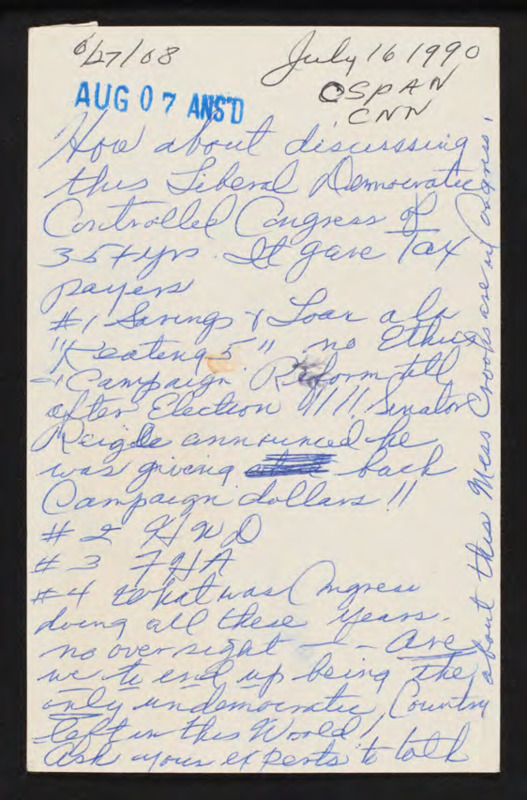 6/27/08
July 16 1990
AUG 07 ANS'D
CSPAN
CNN
How about discussing
this Liberal Democratic
Controlled Congress of
35+yrs. It gave Tax
payers
#1 Savings & Loan a la
"Keating 5" no Ethics
+ Campaign Reform till
after Election 91!! Senator
Reigle announced he
was giving back
Campaign dollars!!
#2 HUD
#3 FHA
#4 What was Congress
doing all these years.
no over sight - - Are
we to end up being the
only undemocratic Country
left in this World!
Ask your experts to talk
about this Mess Crooks are in Congress.